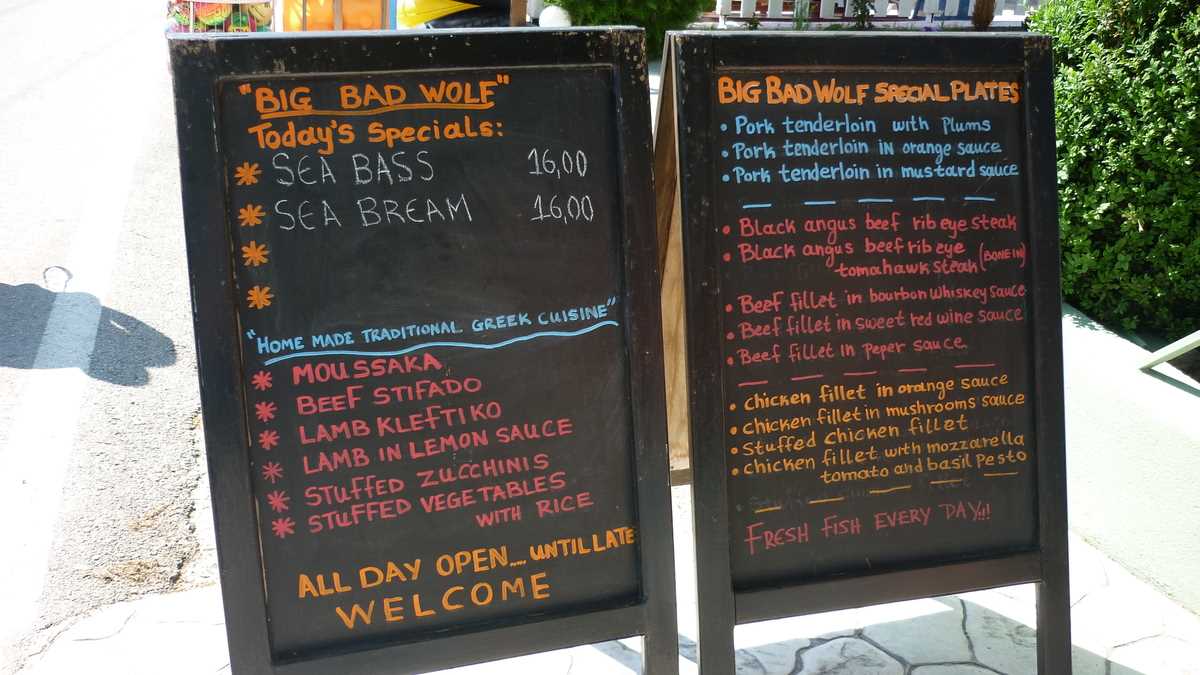 "BIG BAD WOLF"
Today's Specials:
SEA BASS 16,00
SEA BREAM 16,00
"HOME MADE TRADITIONAL GREEK CUISINE"
MOUSSAKA
BEEF STIFADO
LAMB KLEFTIKO
LAMB IN LEMON SAUCE
STUFFED ZUCCHINIS
STUFFED VEGETABLES
WITH RICE
ALL DAY OPEN.....UNTIL LATE
WELCOME
BIG BAD WOLF SPECIAL PLATES
• Pork tenderloin with Plums
• Pork tenderloin in orange sauce
• Pork tenderloin in mustard sauce
• Black angus beef rib eye steak
• Black angus beef rib eye
tomahawk steak (BONE IN)
• Beef fillet in bourbon whiskey sauce
• Beef fillet in sweet red wine sauce
• Beef fillet in peper sauce
• chicken fillet in orange sauce
• chicken fillet in mushrooms sauce
• Stuffed chicken fillet
• chicken fillet with mozzarella
tomato and basil pesto
FRESH FISH EVERY DAY!!!